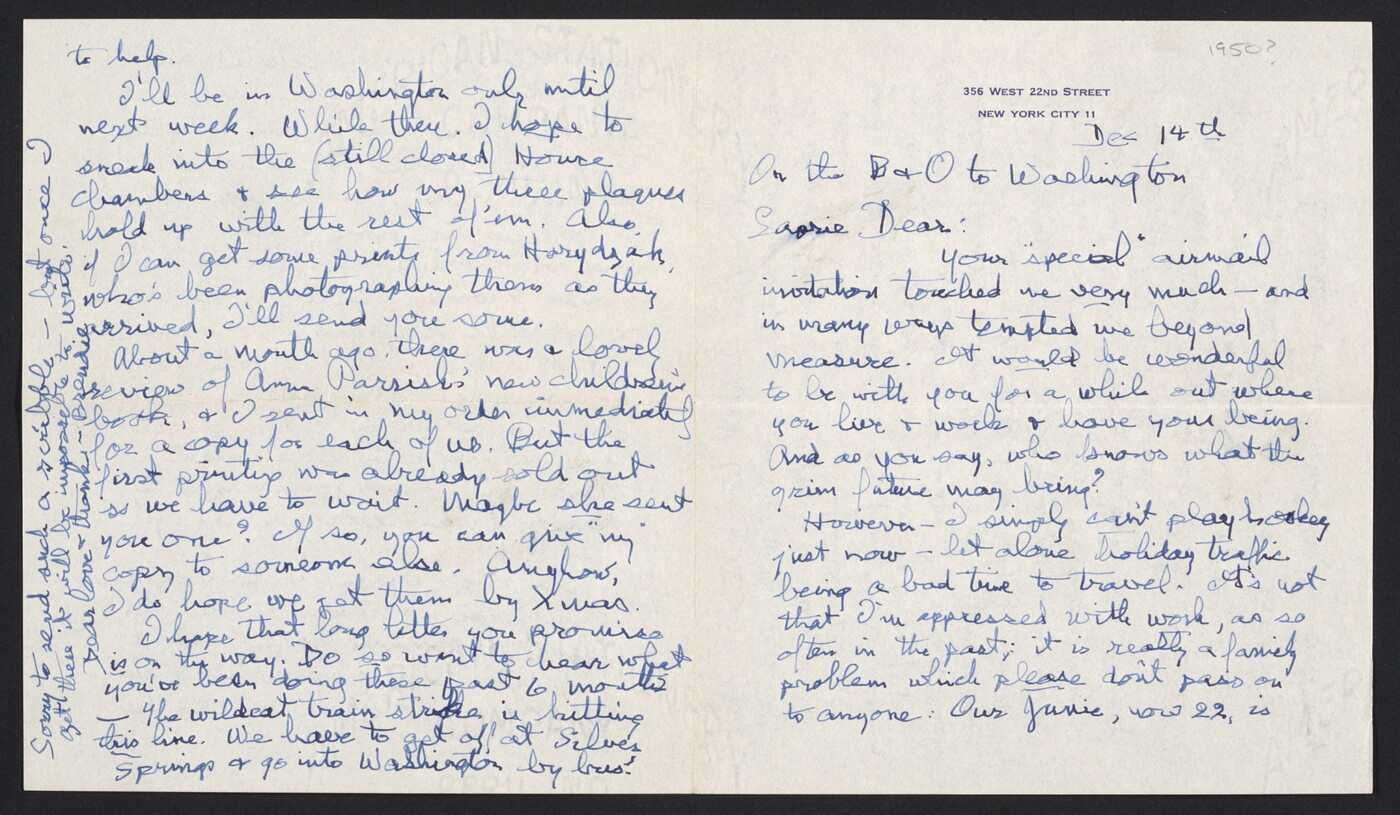 1950?
356 WEST 22ND STREET
NEW YORK CITY 11
Dec 14th
On the B & O to Washington
Dear:
your "special" airmail
invitation touched me very much — and
in many ways tempted me beyond
measure. It would be wonderful
to be with you for a while out where
you live & work & have your being.
And as you say, who knows what the
grim future may bring?
However — I simply can't play hookey
just now — let alone holiday traffic
being a bad time to travel. It's not
that I'm oppressed with work, as so
often in the past; it is really a family
problem which please don't pass on
to anyone. Our Junie, now 22, is
to help.
I'll be in Washington only until
next week. While there I hope to
sneak into the (still closed) House
chambers & see how my three plaques
hold up with the rest of 'em. Also,
if I can get some prints from Horydczak,
who's been photographing them as they
arrived, I'll send you some.
About a month ago there was a lovely
review of Anne Parrish's new children's
book, & I sent in my order immediately
for a copy for each of us. But the
first printing was already sold out
so we have to wait. Maybe she sent
you one? If so, you can give "my"
copy to someone else. Anyhow,
I do hope we get them by Xmas.
I hope that long letter you promise
is on the way. Do so want to hear what
you've been doing these past 6 months
— The wildcat train strike is hitting
this line. We have to get off at Silver
Springs & go into Washington by bus.
Sorry to send such a scribble — but once I
get there it will be impossible to write.
Dear love & thanks — Brenda